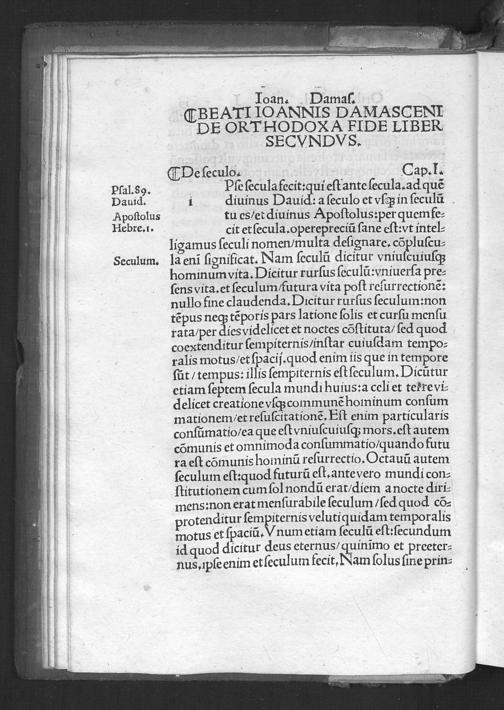 Ioan. Damas.
⁋BEATI IOANNIS DAMASCENI
DE ORTHODOXA FIDE LIBER
SECVNDVS.
⁋De seculo. Cap.I.
Psal.89.
Dauid.
Apostolus
Hebre.1.
Seculum.
i Pse secula fecit:qui est ante secula.ad quē
diuinus Dauid: a seculo et vsq; in seculū
tu es/et diuinus Apostolus:per quem fe⸗
cit et secula.operepreciū sane est:vt intel⸗
ligamus seculi nomen/multa designare. cōpluscu⸗
la eni significat. Nam seculū dicitur vniuscuiusq;
hominum vita. Dicitur rursus seculū:vniuersa pre⸗
sens vita. et seculum/futura vita post resurrectionē:
nullo fine claudenda. Dicitur rursus seculum:non
tēpus neq; tēporis pars latione solis et cursu mensu
rata/per dies videlicet et noctes cōstituta/sed quod
coextenditur sempiternis/instar cuiusdam tempo⸗
ralis motus/et spacij. quod enim iis que in tempore
sūt/tempus: illis sempiternis est seculum. Dicūtur
etiam septem secula mundi huius:a celi et terre vi⸗
delicet creatione vsq; communē hominum consum
mationem/et resuscitationē. Est enim particularis
consūmatio/ea que est vniuscuiusq; mors. est autem
cōmunis et omnimoda consummatio/quando futu
ra est cōmunis hominū resurrectio. Octauū autem
seculum est:quod futurū est. ante vero mundi con⸗
stitutionem cum sol nondū erat/diem a nocte diri⸗
mens:non erat mensurabile seculum/sed quod cō⸗
protenditur sempiternis veluti quidam temporalis
motus et spaciū. Vnum etiam seculū est:secundum
id quod dicitur deus eternus/quinimo et preeter⸗
nus, ipse enim et seculum fecit, Nam solus sine prin⸗